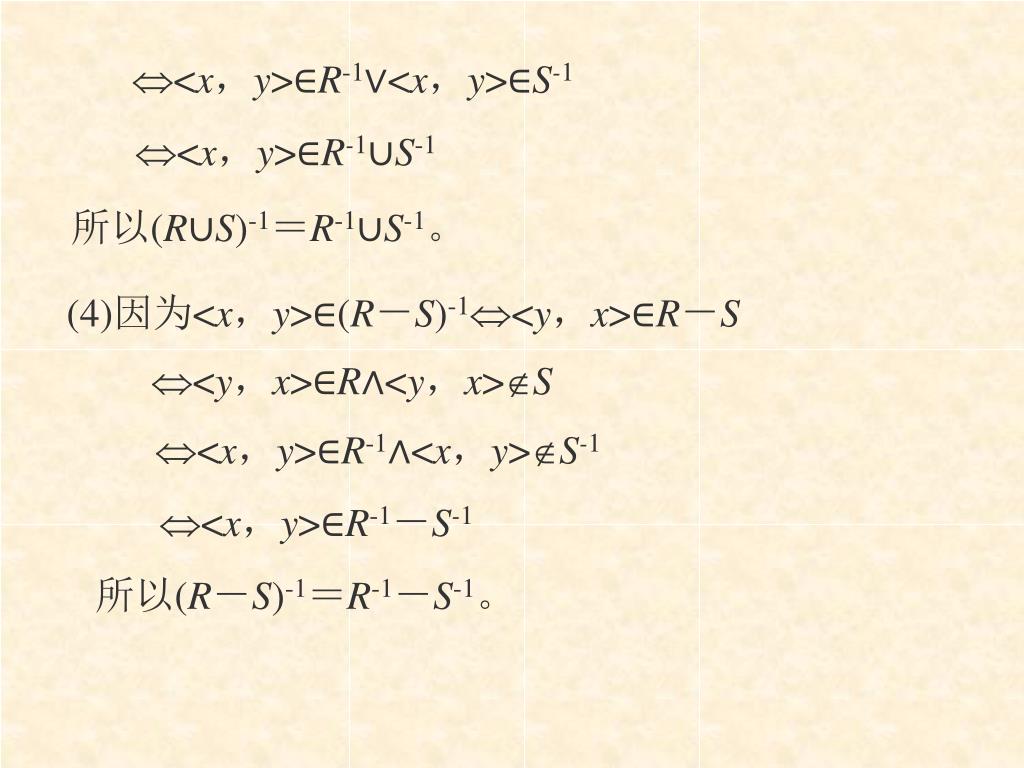 ⇔<x，y>∈R-1∨<x，y>∈S-1
⇔<x，y>∈R-1∪S-1
所以(R∪S)-1＝R-1∪S-1。
(4)因为<x，y>∈(R－S)-1⇔<y，x>∈R－S
⇔<y，x>∈R∧<y，x>∉S
⇔<x，y>∈R-1∧<x，y>∉S-1
⇔<x，y>∈R-1－S-1
所以(R－S)-1＝R-1－S-1。